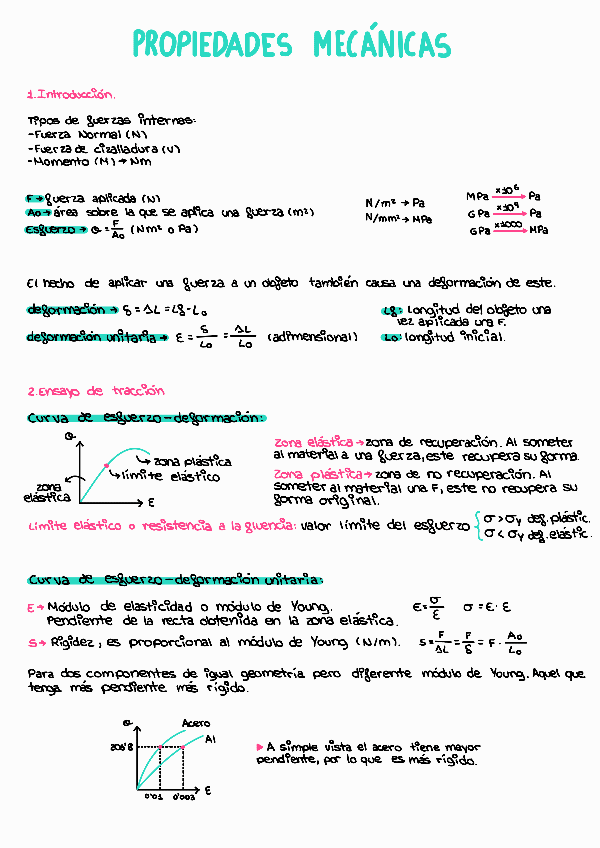 PROPIEDADES MECÁNICAS
1.Introducción.
Tipos de fuerzas internas:
-Fuerza Normal (N)
-Fuerza de cizalladura (V)
-Momento (M) → Nm
F → fuerza aplicada (N)
A₀ → área sobre la que se aplica una fuerza (m²)
Esfuerzo → σ = F/A₀ (Nm² o Pa)
N/m² → Pa
N/mm² → MPa
MPa ×10⁶ → Pa
GPa ×10⁹ → Pa
GPa ×1000 → MPa
El hecho de aplicar una fuerza a un objeto también causa una deformación de este.
deformación → δ = ΔL = Lf - L₀
deformación unitaria → ε = δ/L₀ = ΔL/L₀ (adimensional)
Lf: Longitud del objeto una
vez aplicada una F.
L₀: longitud inicial.
2.Ensayo de tracción
Curva de esfuerzo-deformación:
σ
zona plástica
límite elástico
zona
elástica
ε
zona elástica → zona de recuperación. Al someter
al material a una fuerza, este recupera su forma.
zona plástica → zona de no recuperación. Al
someter al material una F, este no recupera su
forma original.
Límite elástico o resistencia a la fluencia: valor límite del esfuerzo { σ > σy def. plástic.
σ < σy def. elástic.
Curva de esfuerzo-deformación unitaria:
E → Módulo de elasticidad o módulo de Young.
Pendiente de la recta obtenida en la zona elástica.
E = σ/ε σ = E · ε
S → Rigidez, es proporcional al módulo de Young (N/m). S = F/ΔL = F/δ = F · A₀/L₀
Para dos componentes de igual geometría pero diferente módulo de Young. Aquel que
tenga más pendiente más rígido.
σ
Acero
Al
206'8
0'01 0'003
ε
▸ A simple vista el acero tiene mayor
pendiente, por lo que es más rígido.